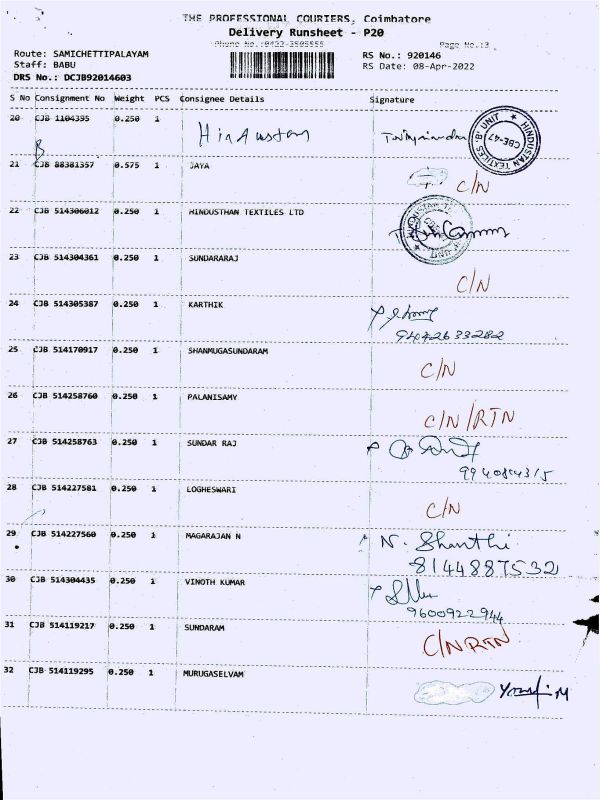 THE PROFESSIONAL COURIERS, Coimbatore
Delivery Runsheet - P20
Phone No.:0422-3505555 Page No.:3
Route: SAMICHETTIPALAYAM RS No.: 920146
Staff: BABU RS Date: 08-Apr-2022
DRS No.: DCJB92014603
S No Consignment No Weight PCS Consignee Details Signature
20 CJB 1104395 0.250 1 Hindustan
HINDUSTAN TEXTILES 'B' UNIT CBE-47
21 CJB 88381357 0.575 1 JAYA C/N
22 CJB 514306012 0.250 1 HINDUSTHAN TEXTILES LTD
23 CJB 514304361 0.250 1 SUNDARARAJ C/N
24 CJB 514305387 0.250 1 KARTHIK
9442633282
25 CJB 514170917 0.250 1 SHANMUGASUNDARAM C/N
26 CJB 514258760 0.250 1 PALANISAMY C/N/RTN
27 CJB 514258763 0.250 1 SUNDAR RAJ
28 CJB 514227581 0.250 1 LOGHESWARI C/N
29 CJB 514227560 0.250 1 MAGARAJAN N N. Shanthi
8144887532
30 CJB 514304435 0.250 1 VINOTH KUMAR
9600922944
31 CJB 514119217 0.250 1 SUNDARAM C/N RTN
32 CJB 514119295 0.250 1 MURUGASELVAM